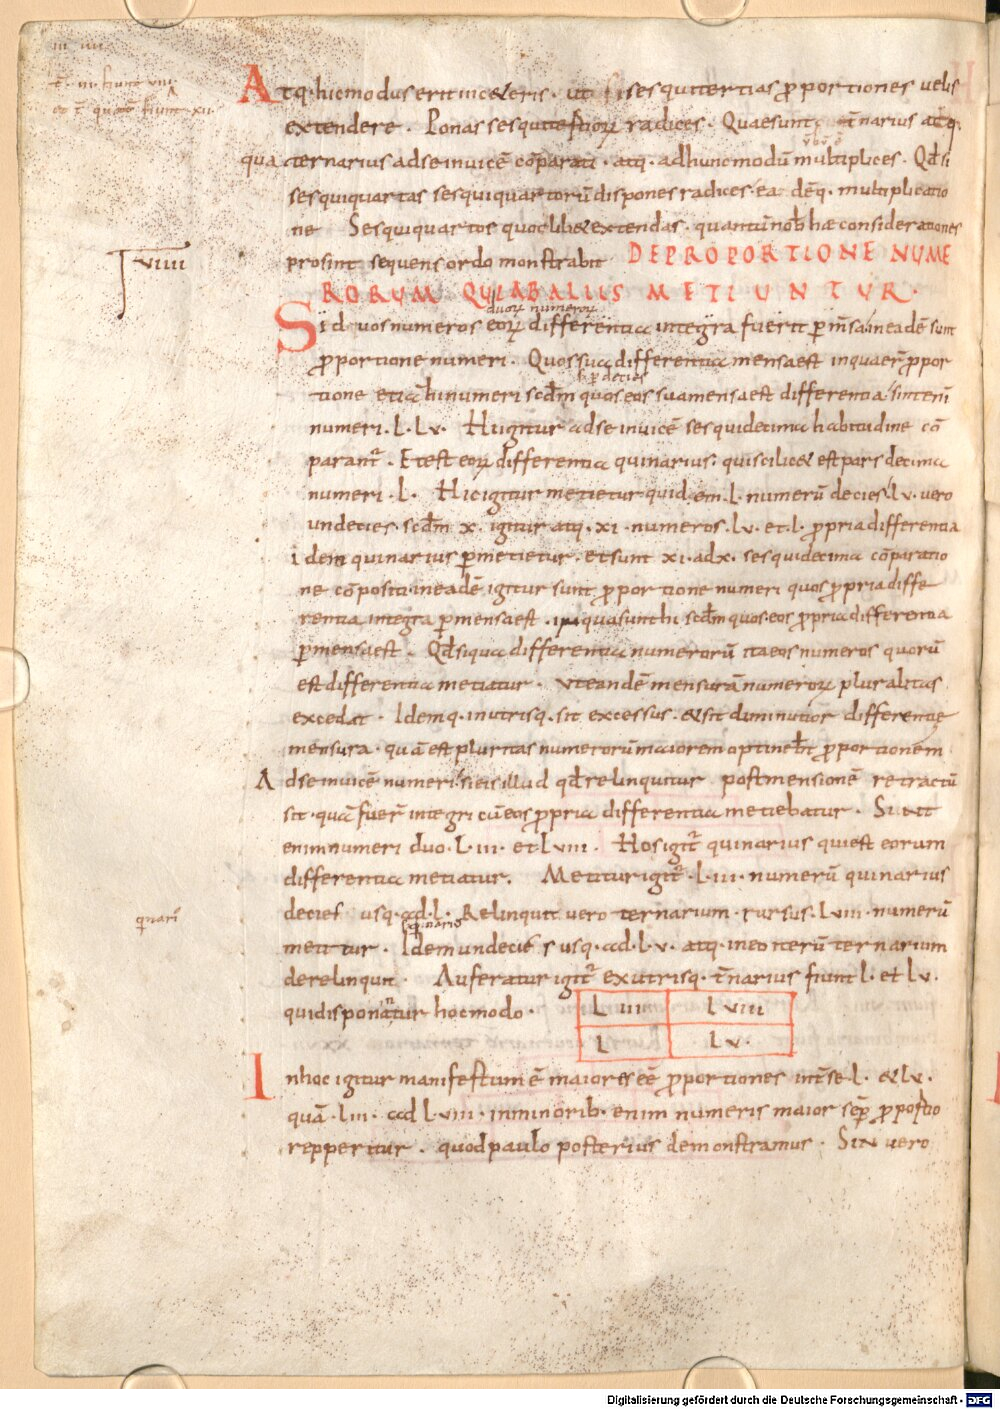 Atq· hic modus erit in ce&eris · ut si sesquitertias pportiones velis
extendere · Ponas sesqutertioꝝ radices · Quae sunt narius atq·
qua ternarius ad se invicē cōparati · atq· ad hunc modū multiplices · Qđ si
sesqui quartas sesqui quartorū dispones radices · ea dēq· multiplicatio
ne Sesqui quartos quoslib& extendas · quantū nob hae considerationes
prosint sequens ordo monstrabit DE PROPORTIONE NUME
RORUM QUI AB ALIIS METIUNTUR ·
VIIII
duoꝝ numeroꝝ
Si duos numeros eoꝝ differentia integra fuerit pmsa in eadē sunt
pportione numeri · Quos sua differentia mensa est in qua erpropor
tione etiā hi numeri scdm quos eos sua mensa est differentia sint eni
numeri · L · LV · Hi igitur ad se invicē sesquidecima habitudine cō
parant · Et est eoꝝ differentia quinarius · qui scilic& est pars decima
numeri · L · Hic igitur metietur quidem · L · numerū decies · LV · vero
undecies · scdm · X · igitur atq· XI · numeros · LV · et · L · ppria differentia
idem quinarius pmetietur · et sunt XI · ad X · sesquidecima cōparatio
ne cōpositi in eadē igitur sunt pportione numeri quos ppria diffe
rentia integra pmensa est · in qua sunt hi scdm quos eos ppria differentia
pmensa est · Qđ si qua differentia numerorū ita eos numeros quorū
est differentia metiatur · ut eandē mensurā numeroꝝ pluralitas
excedat · Idemq· in utrisq· sit excessus · & sit diminutior differentie
mensura · quā est pluritas numerorum maiorem optinebt pportionem
Ad se invicē numeri · si eis illud qđ relinquitur post mensionē retractū
sit · quā fuer integri cū eos ppria differentia metiebatur · Sint
enim numeri duo · LIII · et LVIII · Hos igit quinarius qui est eorum
differentia metiatur · Metitur igit · LIII · numerū quinarius
decies usq· ad · L · Relinquit vero ternarium · rursus · LVIII · numerū
quinari
metitur · Idem undecies usq· ad · LV · atq· in eo iterū ternarium
derelinqunt · Auferatur igit ex utrisq· t̄narius fiunt L · et LV ·
qui disponantur hoc modo · LIII LVIII
L LV ·
In hoc igitur manifestum ē maiores eē pportiones int se · L · & LV ·
quā · LIII · ad LVIII · in minorib· enim numeris maior sep ppostio
repperitur · quod paulo posterius demonstramus · Sin vero
Digitalisierung gefördert durch die Deutsche Forschungsgemeinschaft - DFG